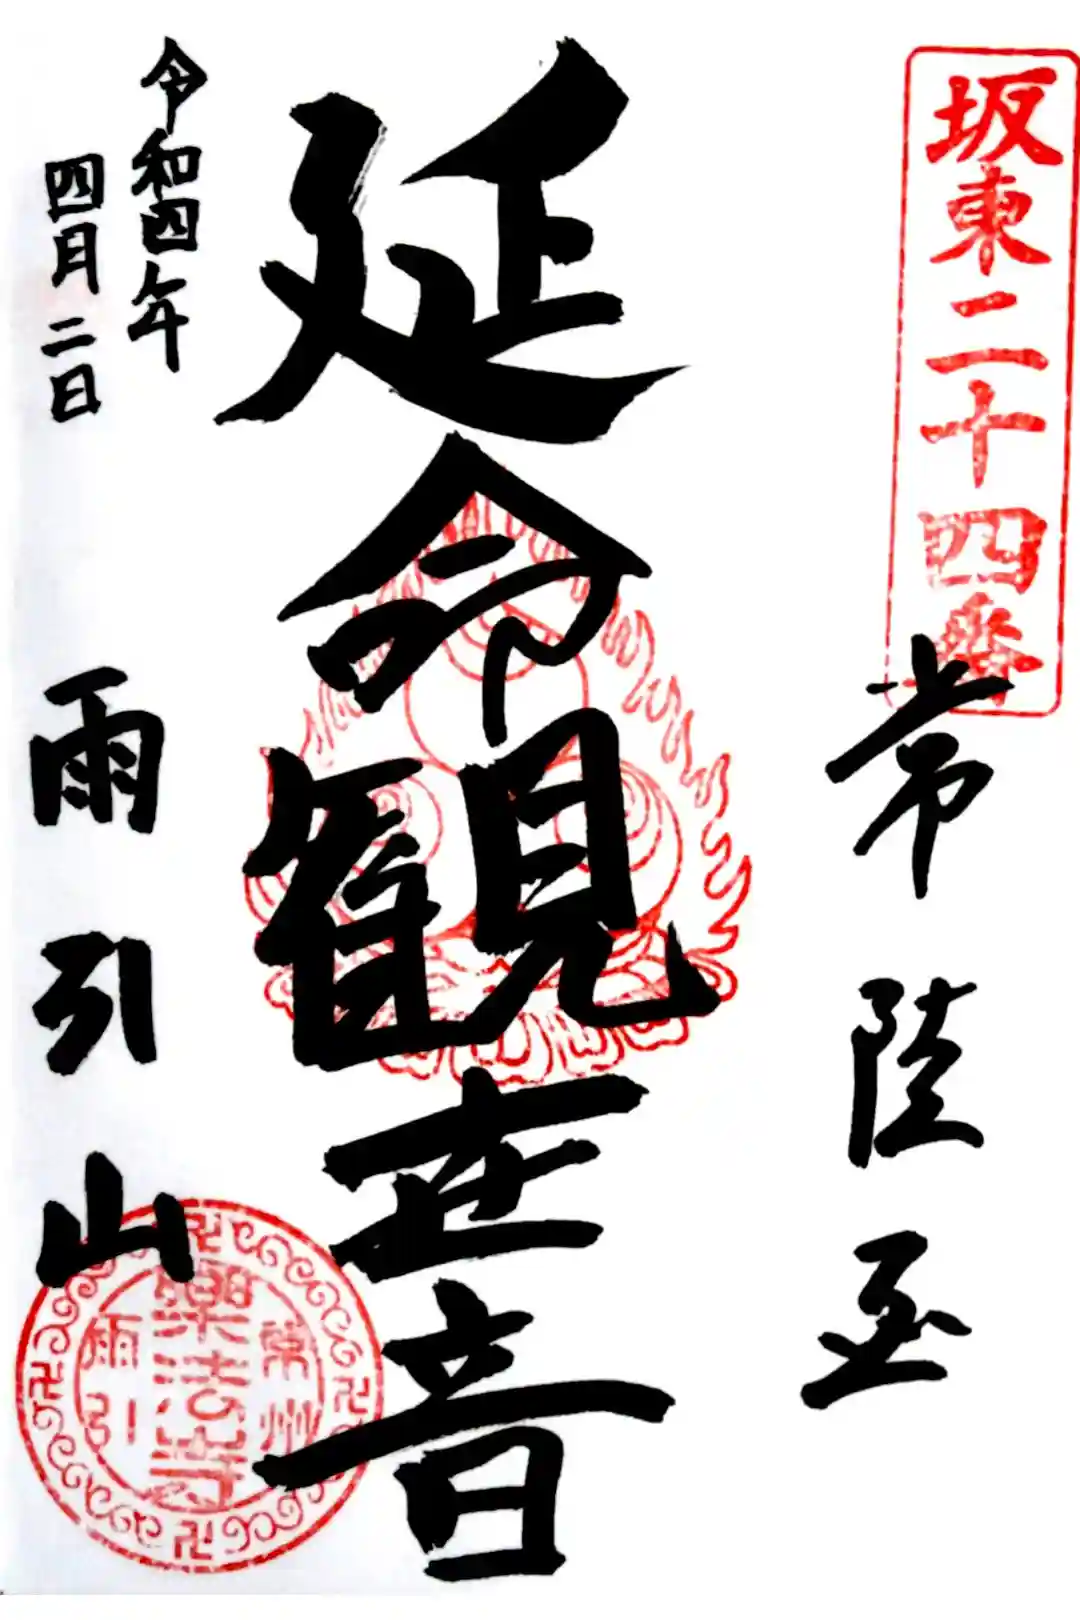 坂東二十四番
常陸
延命観世音
令和四年
四月二日
雨引山
常州
樂法寺
雨引